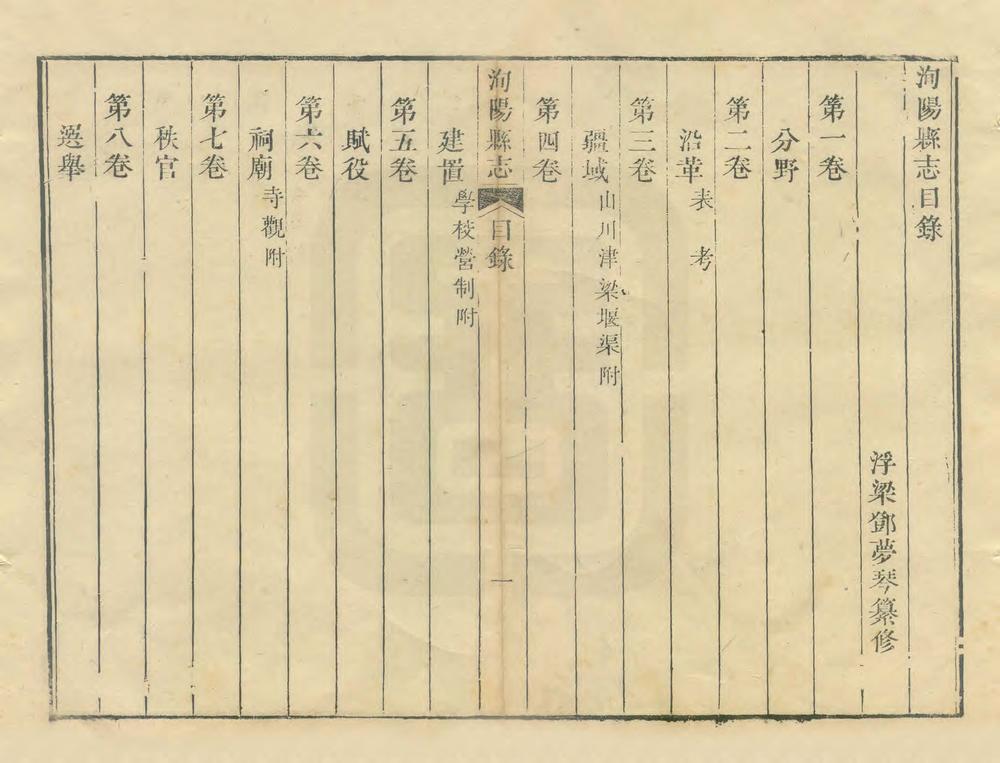 洵陽縣志目錄
浮梁鄧夢琴纂修
第一卷
分野
第二卷
沿革 表 考
第三卷
疆域 山川津梁堰渠附
第四卷
洵陽縣志 目錄 一
建置 學校營制附
第五卷
賦役
第六卷
祠廟 寺觀附
第七卷
秩官
第八卷
選舉